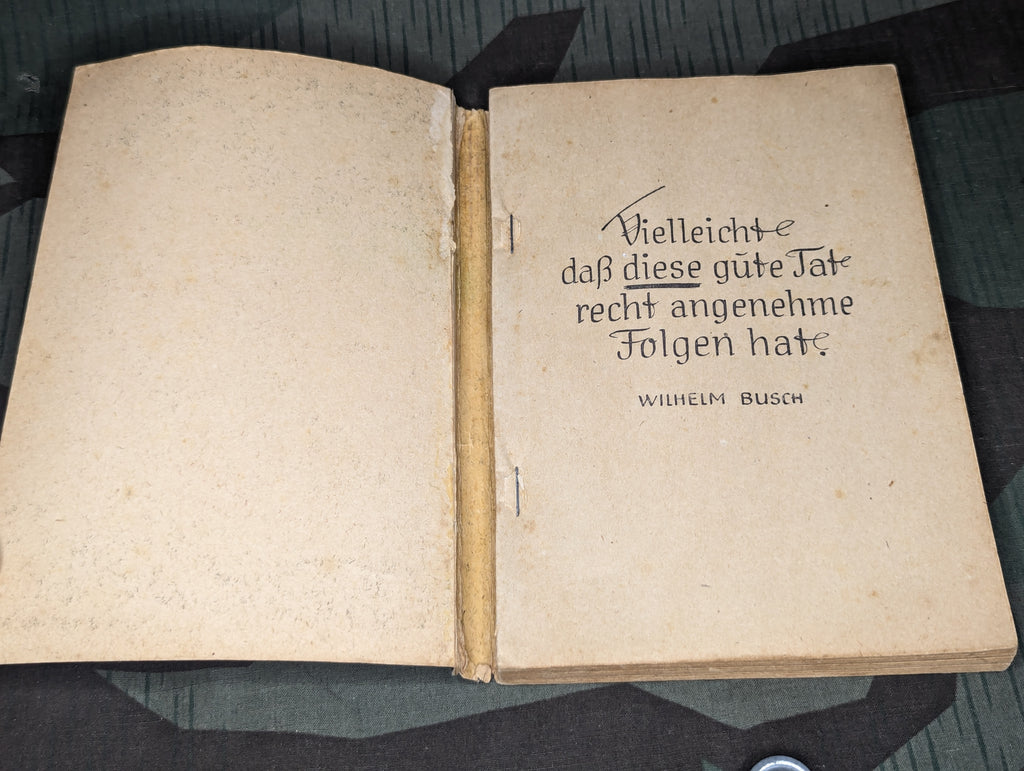 Vielleicht
daß diese gūte Tat
recht angenehme
Folgen hat.
WILHELM BUSCH